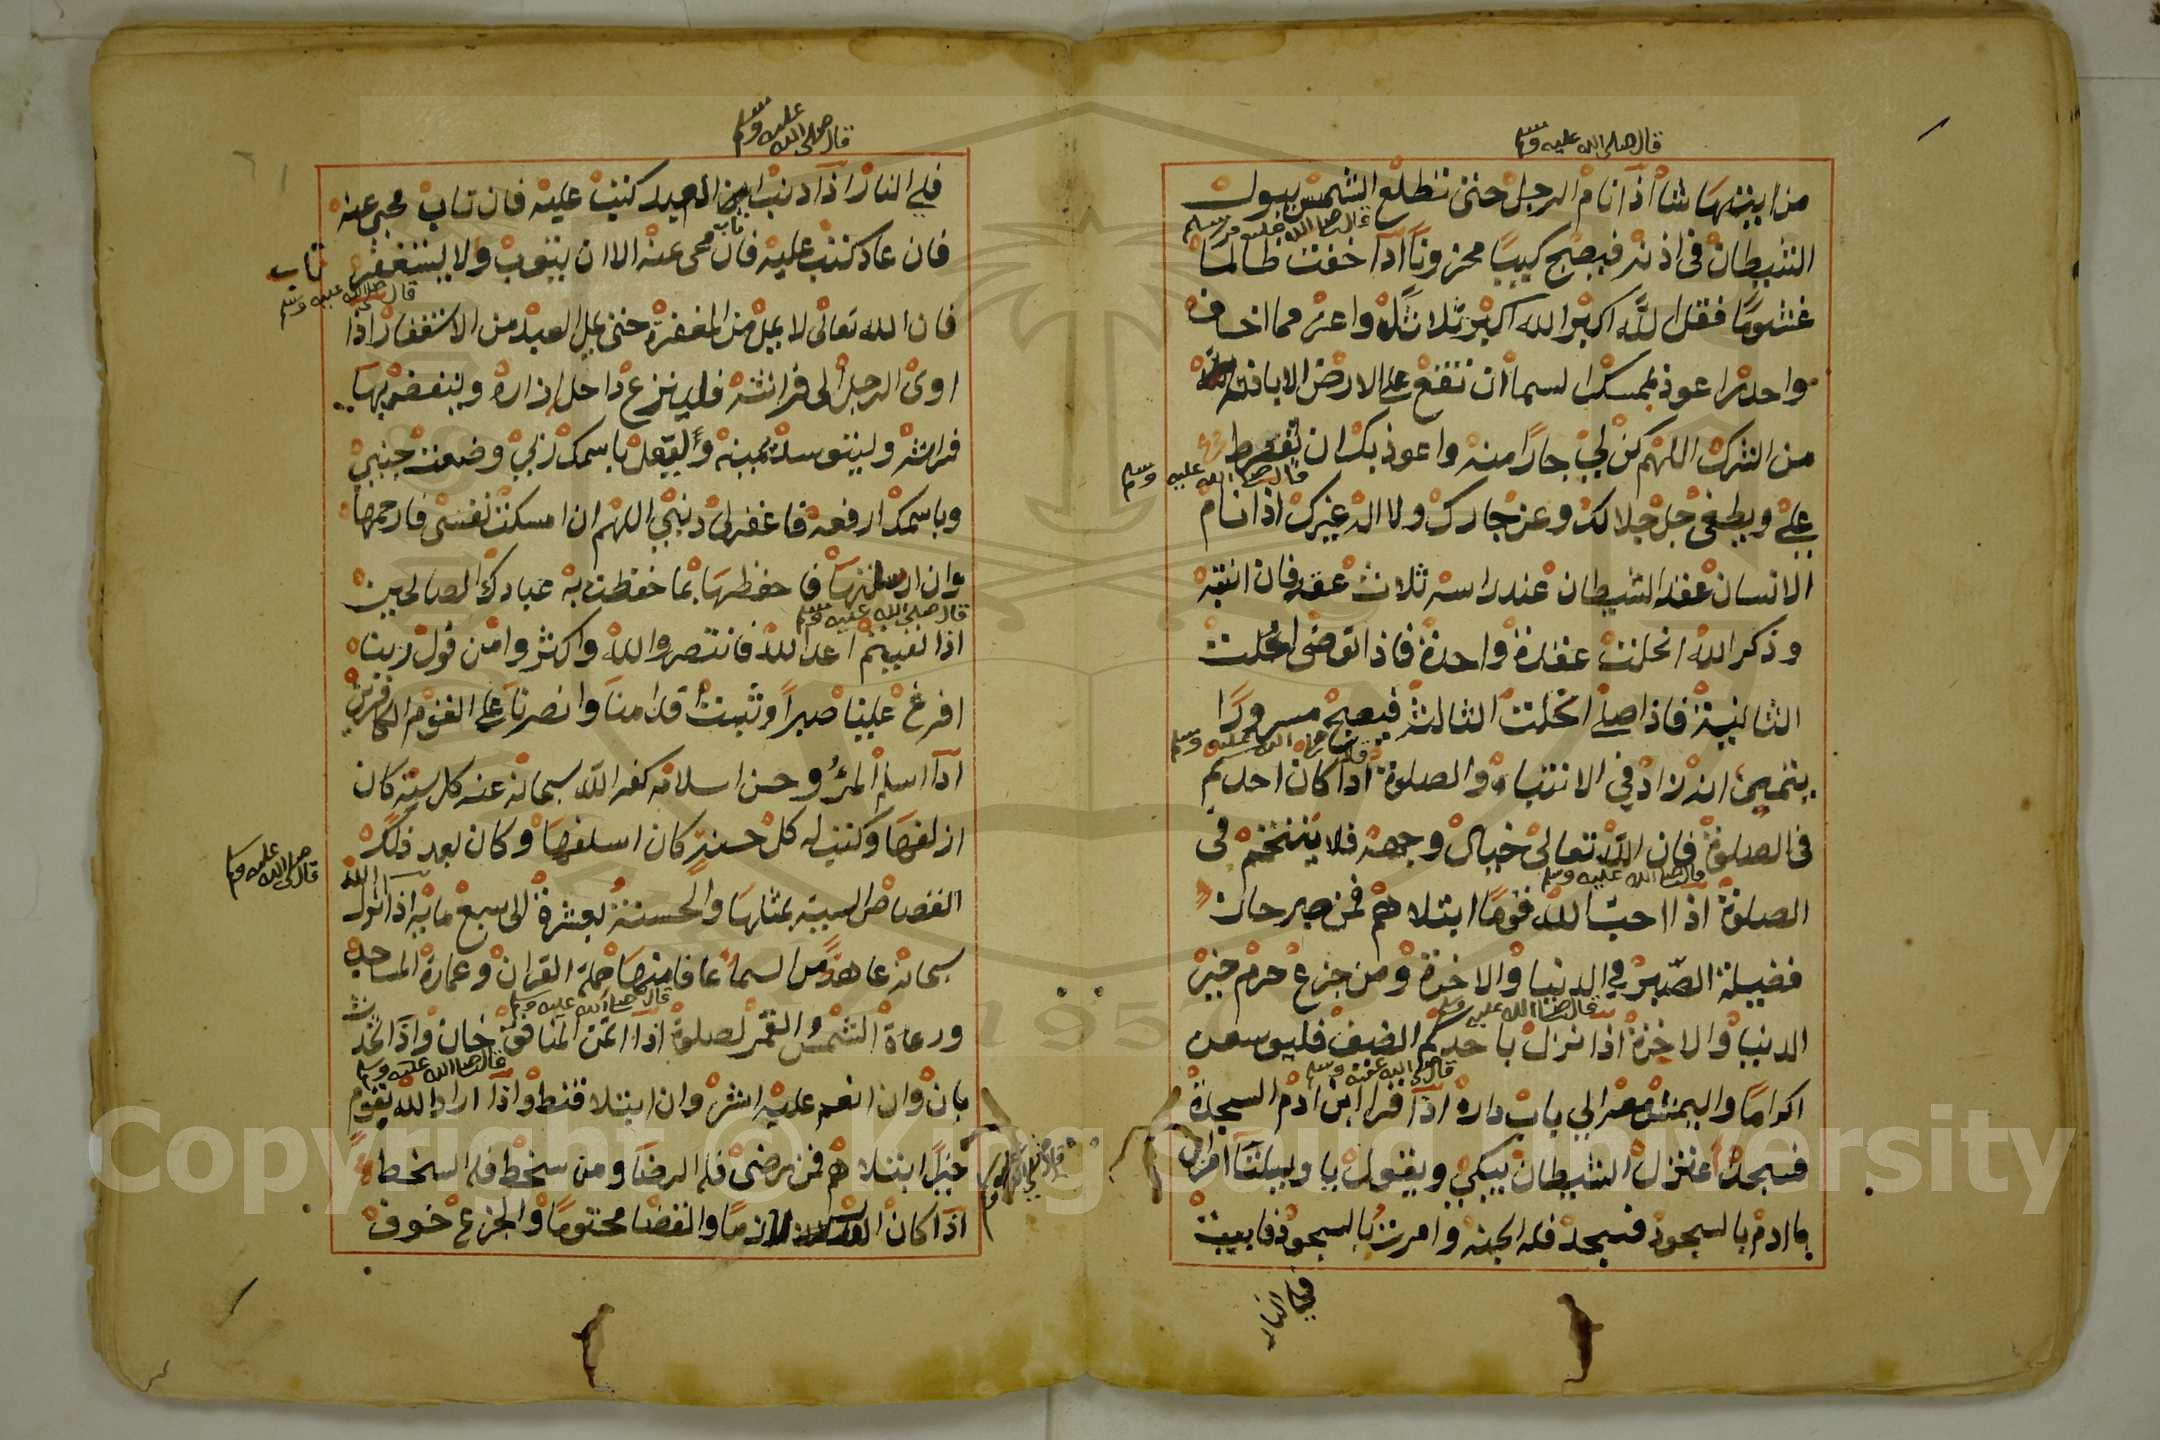 قال صلى الله عليه وسلم
من ايتهما شاء اذا نام الرجل حتى تطلع الشمس يبول
قال صلى الله عليه وسلم
الشيطان فى اذنه فيصبح كيبا محزونا اذا خفت ظالما
غشوما فقل الله اكبر الله اكبر ثلاثا واعز مما اخاف
واحذر اعوذ بممسك السما ان تقع على الارض الا باذنه
من الشرك اللهم كن لى جارا منه واعوذ بك ان يفرط
قال صلى الله عليه وسلم
على ويطغى جل جلالك وعز جارك ولا اله غيرك اذا نام
الانسان عقد الشيطان عند راسه ثلاث عقد فان انتبه
وذكر الله انحلت عقدة واحدة فاذا توضى انحلت
الثانية فاذا صلى انحلت الثالثة فيصبح مسرورا
قال صلى الله عليه وسلم
ان زاد فى الانتباه والصلوة اذا كان احدكم
فى الصلوة فان الله تعالى خيال وجهه فلا يتنخم فى
قال صلى الله عليه وسلم
الصلوة اذا احب الله قوما ابتلاهم فمن صبر حاز
فضيلة الصبر فى الدنيا والاخرة ومن جزع حرم خير
قال صلى الله عليه وسلم
الدنيا والاخرة اذا نزل باحدكم الضيف فليوسعه
قال صلى الله عليه وسلم
اكراما واليمش معه الى باب داره اذا قرا ابن ادم السجدة
فسجد اعتزل الشيطان يبكى ويقول يا ويلتا امر ابن
ادم بالسجود فسجد فله الجنة وامرت بالسجود فابيت
فلى النار
قال صلى الله عليه وسلم
فلى النار اذا اذنب العبد كتبت عليه فان تاب محى عنه
فان عاد كتب عليه فان تاب محى عنه الا ان يتوب ولا يستغفر
تاب
قال صلى الله عليه وسلم
فان الله تعالى لا يمل من المغفرة حتى يمل العبد من الاستغفار اذا
اوى الرجل الى فراشه فلينزع داخل ازاره ولينفض بها
فراشه وليتوسد يمينه وليقل باسمك ربى وضعت جنبى
وباسمك ارفعه فاغفر لى ذنبى اللهم ان امسكت نفسى فارحمها
وان ارسلتها فاحفظها بما حفظت به عبادك الصالحين
قال صلى الله عليه وسلم
اذا لقيتم اعدا الله فانتصروا الله واكثروا من قول ربنا
افرغ علينا صبرا وثبت اقدامنا وانصرنا على القوم الكافرين
اذا اسلم المرؤ وحسن اسلامه كفر الله سبحانه عنه كل سيئة كان
ازلفها وكتب له كل حسنة كان اسلفها وكان بعد ذلك
قال صلى الله عليه وسلم
القصاص السيية بمثلها والحسنة بعشرة الى سبع ماية اذا انزل الله
سبحانه عاهة من السما عافا منها حملة القران وعمارة المساجد
قال صلى الله عليه وسلم
ورعاة الشمس والقمر لصلوة اذا ائتمن المنافق خان واذا تحدث
قال صلى الله عليه وسلم
بان وان انعم عليه اشر وان ابتلا قنط واذا اراد الله بقوم
خيرا ابتلاهم فمن رضى فله الرضا ومن سخط فله السخط
اذا كان لازما والقضا محتوما والجزع خوف
Copyright © King Saud University
1957